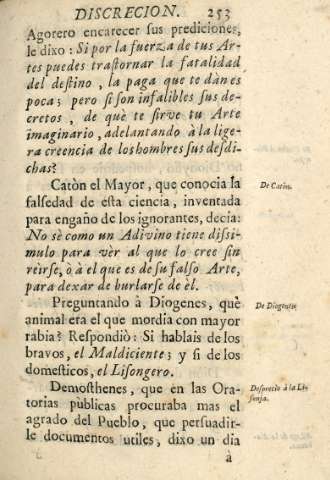 DISCRECION. 253
Agorero encarecer sus prediciones,
le dixo: Si por la fuerza de tus Ar-
tes puedes trastornar la fatalidad
del destino, la paga que te dàn es
poca; pero si son infalibles sus de-
cretos, de què te sirve tu Arte
imaginario, adelantando à la lige-
ra creencia de los hombres sus desdi-
chas?
Catòn el Mayor, que conocia la
falsedad de esta ciencia, inventada
para engaño de los ignorantes, decia:
No sè como un Adivino tiene dissi-
mulo para vèr al que lo cree sin
reirse, ò à el que es de su falso Arte,
para dexar de burlarse de èl.
De Catòn.
Preguntando à Diogenes, què
animal era el que mordia con mayor
rabia? Respondiò: Si hablais de los
bravos, el Maldiciente; y si de los
domesticos, el Lisongero.
De Diogenes.
Demosthenes, que en las Ora-
torias pùblicas procuraba mas el
agrado del Pueblo, que persuadir-
le documentos utiles, dixo un dia
Desprecio à la Li-
sonja.
à